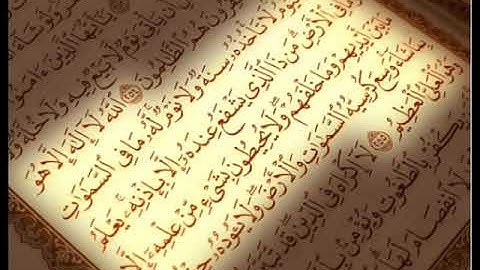 يَٰٓأَيُّهَا ٱلَّذِينَ ءَامَنُوٓا۟
أَن يَأْتِىَ يَوْمٌ لَّا بَيْعٌ فِيهِ وَلَا خُلَّةٌ
هُمُ ٱلظَّٰلِمُونَ ٢٥٤ ٱللَّهُ لَآ إِلَٰهَ إِلَّا هُوَ
لَا تَأْخُذُهُۥ سِنَةٌ وَلَا نَوْمٌ لَّهُۥ مَا فِى ٱلسَّمَٰوَٰتِ
فِى ٱلْأَرْضِ مَن ذَا ٱلَّذِى يَشْفَعُ عِندَهُۥٓ إِلَّا بِإِذْنِهِۦ يَعْلَمُ
مَا بَيْنَ أَيْدِيهِمْ وَمَا خَلْفَهُمْ وَلَا يُحِيطُونَ بِشَىْءٍ مِّنْ عِلْمِهِۦٓ إِلَّا
بِمَا شَآءَ وَسِعَ كُرْسِيُّهُ ٱلسَّمَٰوَٰتِ وَٱلْأَرْضَ وَلَا يَـُٔودُهُۥ
وَهُوَ ٱلْعَلِىُّ ٱلْعَظِيمُ ٢٥٥ لَآ إِكْرَاهَ فِى ٱلدِّينِ قَد
يَكْفُرْ بِٱلطَّٰغُوتِ وَيُؤْمِنۢ
لَا ٱنفِصَامَ لَهَا